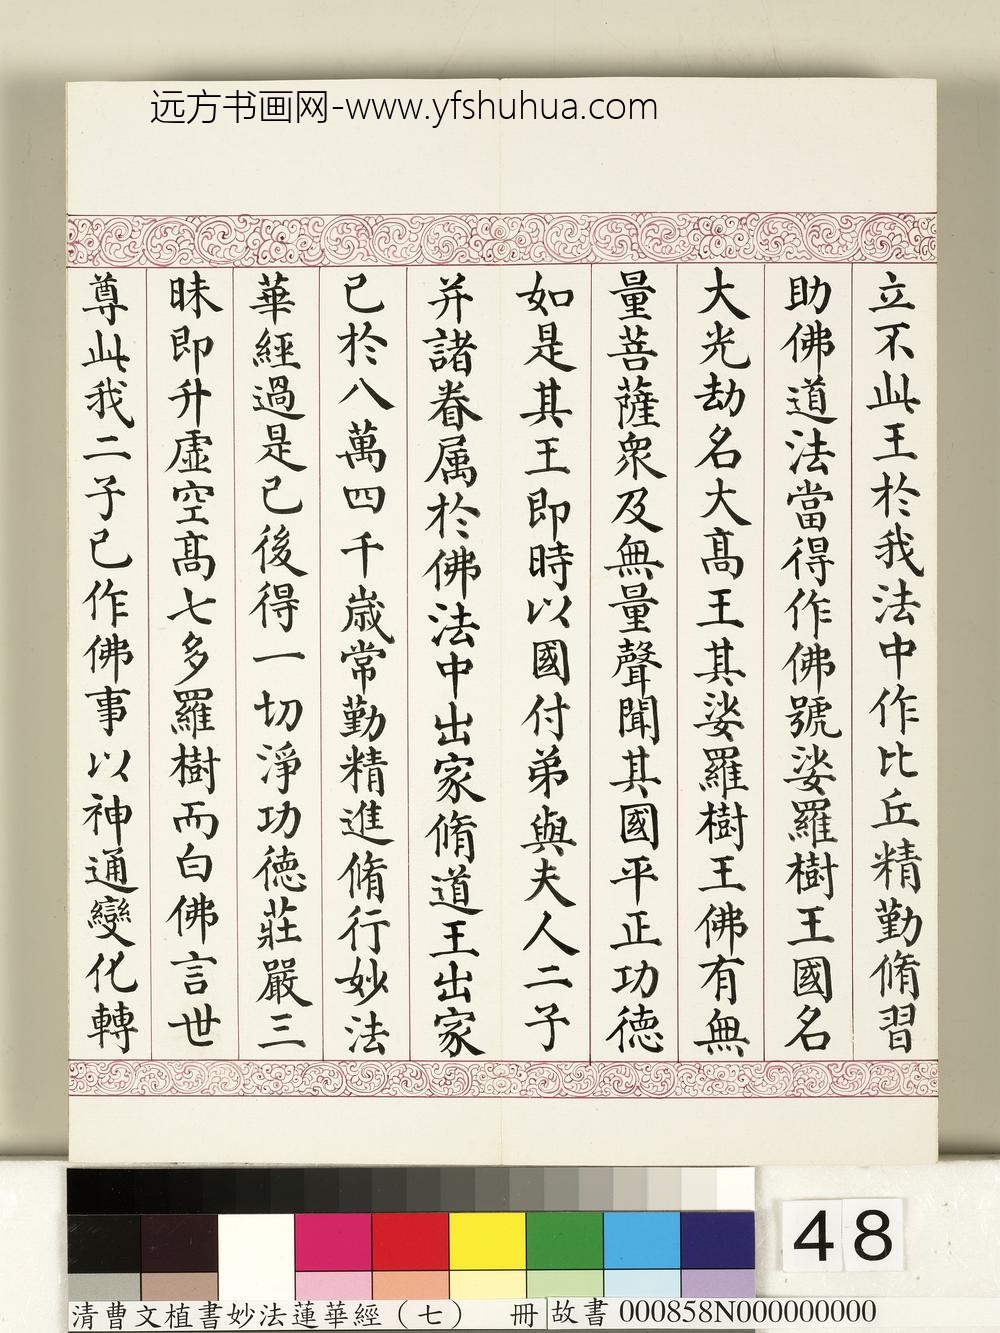 远方书画网-www.yfshuhua.com
立不此王於我法中作比丘精勤脩習
助佛道法當得作佛號娑羅樹王國名
大光劫名大高王其娑羅樹王佛有無
量菩薩衆及無量聲聞其國平正功德
如是其王即時以國付弟與夫人二子
并諸眷属於佛法中出家脩道王出家
已於八萬四千歲常勤精進脩行妙法
華經過是已後得一切淨功德莊嚴三
昧即升虛空髙七多羅樹而白佛言世
尊此我二子已作佛事以神通變化轉
48
清曹文植書妙法蓮華經（七） 冊 故書 000858N000000000